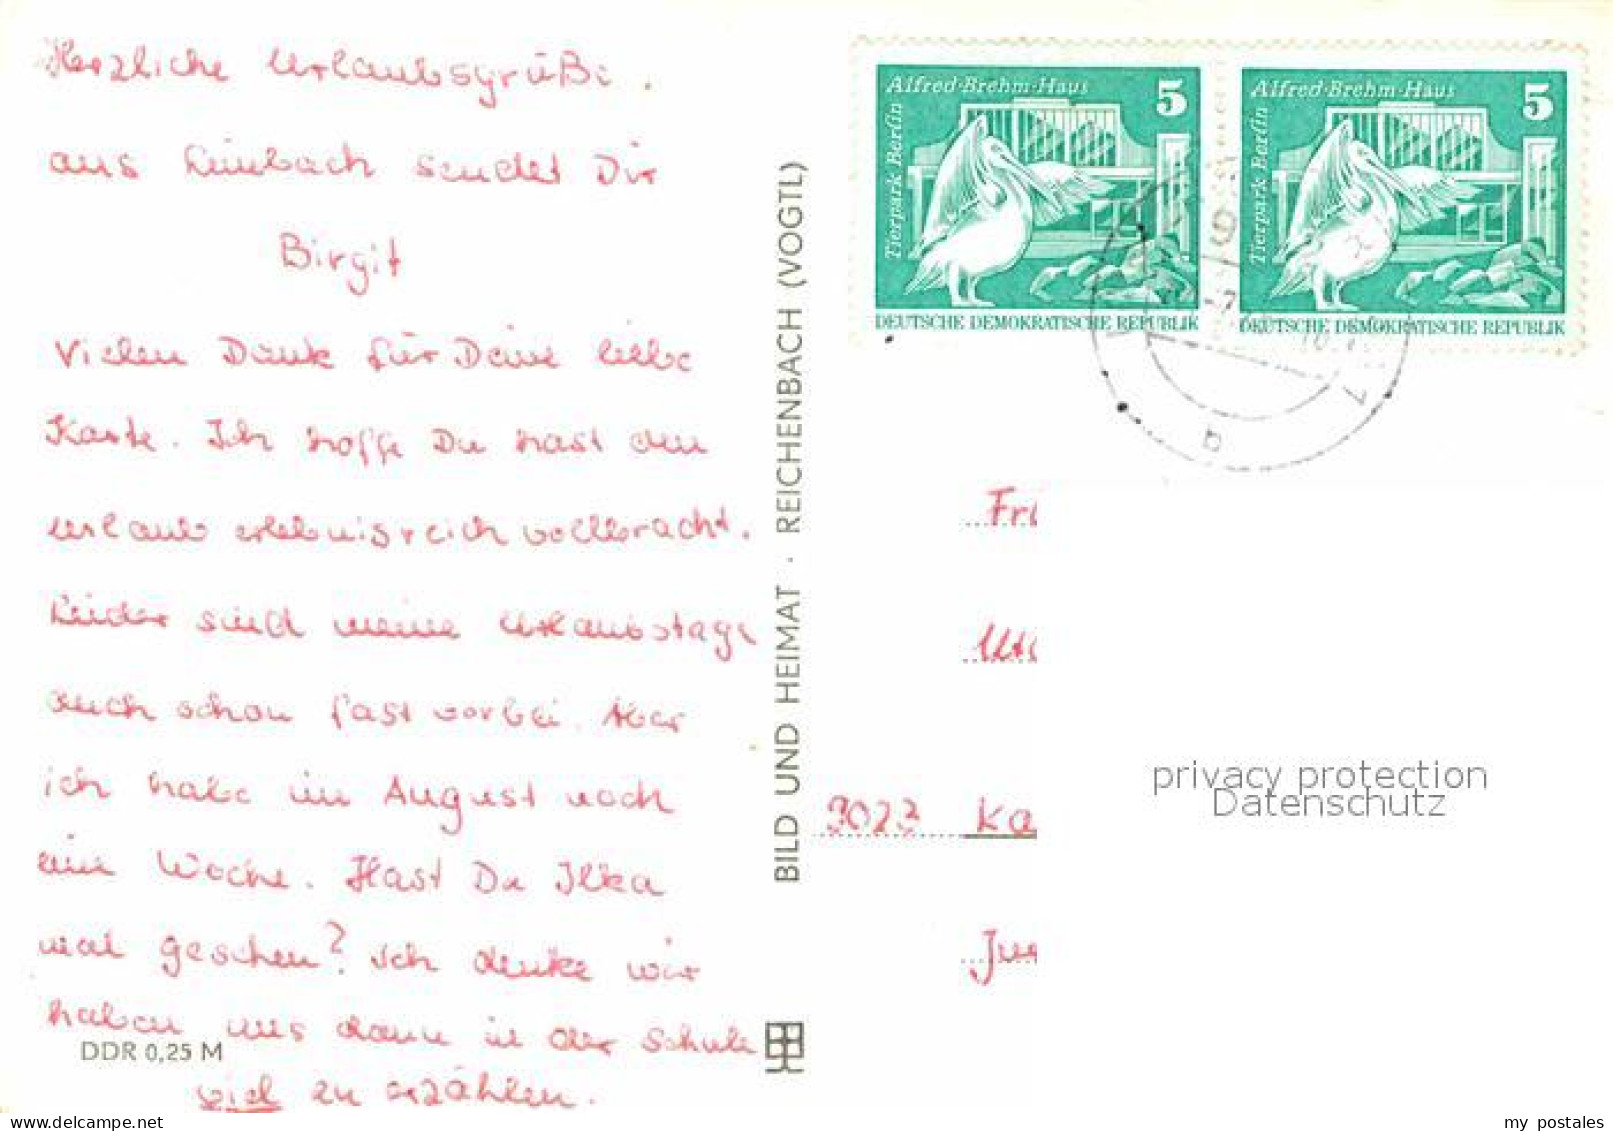 Herzliche Urlaubsgrüße
aus Limbach sendet Dir
Birgit
Vielen Dank für Deine liebe
Karte. Ich hoffe Du hast den
Urlaub erlebnisreich vollbracht.
Leider sind meine Urlaubstage
auch schon fast vorbei. Aber
ich habe im August noch
eine Woche. Hast Du Ilka
mal gesehen? Ich denke wir
haben uns dann in der Schule
viel zu erzählen.
DDR 0,25 M
BILD UND HEIMAT · REICHENBACH (VOGTL)
Alfred-Brehm-Haus 5
Tierpark Berlin
DEUTSCHE DEMOKRATISCHE REPUBLIK
Alfred-Brehm-Haus 5
Tierpark Berlin
DEUTSCHE DEMOKRATISCHE REPUBLIK
9023
privacy protection
Datenschutz
my postales
www.delcampe.net